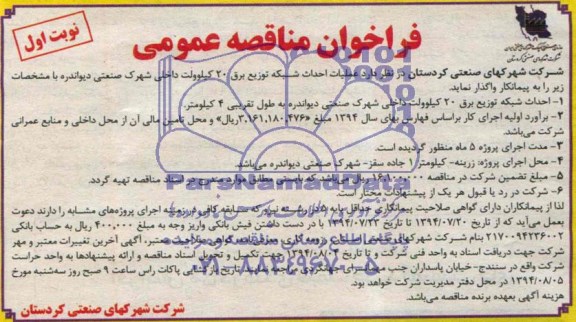 نوبت اول
فراخوان مناقصه عمومی
شرکت شهرکهای صنعتی کردستان در نظر دارد عملیات احداث شبکه توزیع برق ۲۰ کیلوولت داخلی شهرک صنعتی دیواندره با مشخصات
زیر را به پیمانکار واگذار نماید.
۱- احداث شبکه توزیع برق ۲۰ کیلوولت داخلی شهرک صنعتی دیواندره به طول تقریبی ۴ کیلومتر.
۲- برآورد اولیه اجرای کار براساس فهارس بهای سال ۱۳۹۴ مبلغ «۳،۱۶۱،۱۸۰،۴۷۶ریال» و محل تامین مالی آن از محل داخلی و منابع عمرانی
شرکت می‌باشد.
۳- مدت اجرای پروژه: ۵ ماه منظور گردیده است.
۴- محل اجرای پروژه: زرینه- کیلومتر ۱ جاده سقز- شهرک صنعتی دیواندره می‌باشد.
۵- مبلغ تضمین شرکت در مناقصه ریال می‌باشد که بایستی مطابق موارد مندرج در اسناد مناقصه تهیه گردد.
۶- شرکت در رد یا قبول هر یک از پیشنهادات مختار است.
لذا از پیمانکاران دارای گواهی صلاحیت پیمانکاری حداقل پایه ۵ رشته نیرو که سابقه کافی در زمینه اجرای پروژه‌های مشابه را دارند دعوت
بعمل می‌آید که از تاریخ ۱۳۹۴/۰۷/۲۰ تا تاریخ ۱۳۹۴/۰۷/۲۳ با در دست داشتن فیش بانکی واریز وجه به مبلغ ۴۰۰،۰۰۰ ریال به حساب بانکی
۲۱۷۰۰۹۴۲۳۶۰۰۲ بنام شرکت شهرکهای صنعتی معتبر، آگهی آخرین تغییرات معتبر و مهر
شرکت جهت دریافت اسناد به واحد فنی شرکت و تا تاریخ ۱۳۹۴/۰۸/۰۴ جهت تکمیل و تحویل اسناد مناقصه و ارائه پیشنهادها به واحد حراست
شرکت واقع در سنندج- خیابان پاسداران جنب مهمانسرای جهانگردی مراجعه نمایند. تاریخ بازگشایی پاکات راس ساعت ۹ صبح روز سه‌شنبه مورخ
۱۳۹۴/۰۸/۰۵ در محل دفتر مدیریت شرکت خواهد بود.
هزینه آگهی بعهده برنده مناقصه می‌باشد.
شرکت شهرکهای صنعتی کردستان
ParsNamadData
۰۲۱-۸۸۳۴۹۶۷۰-۵